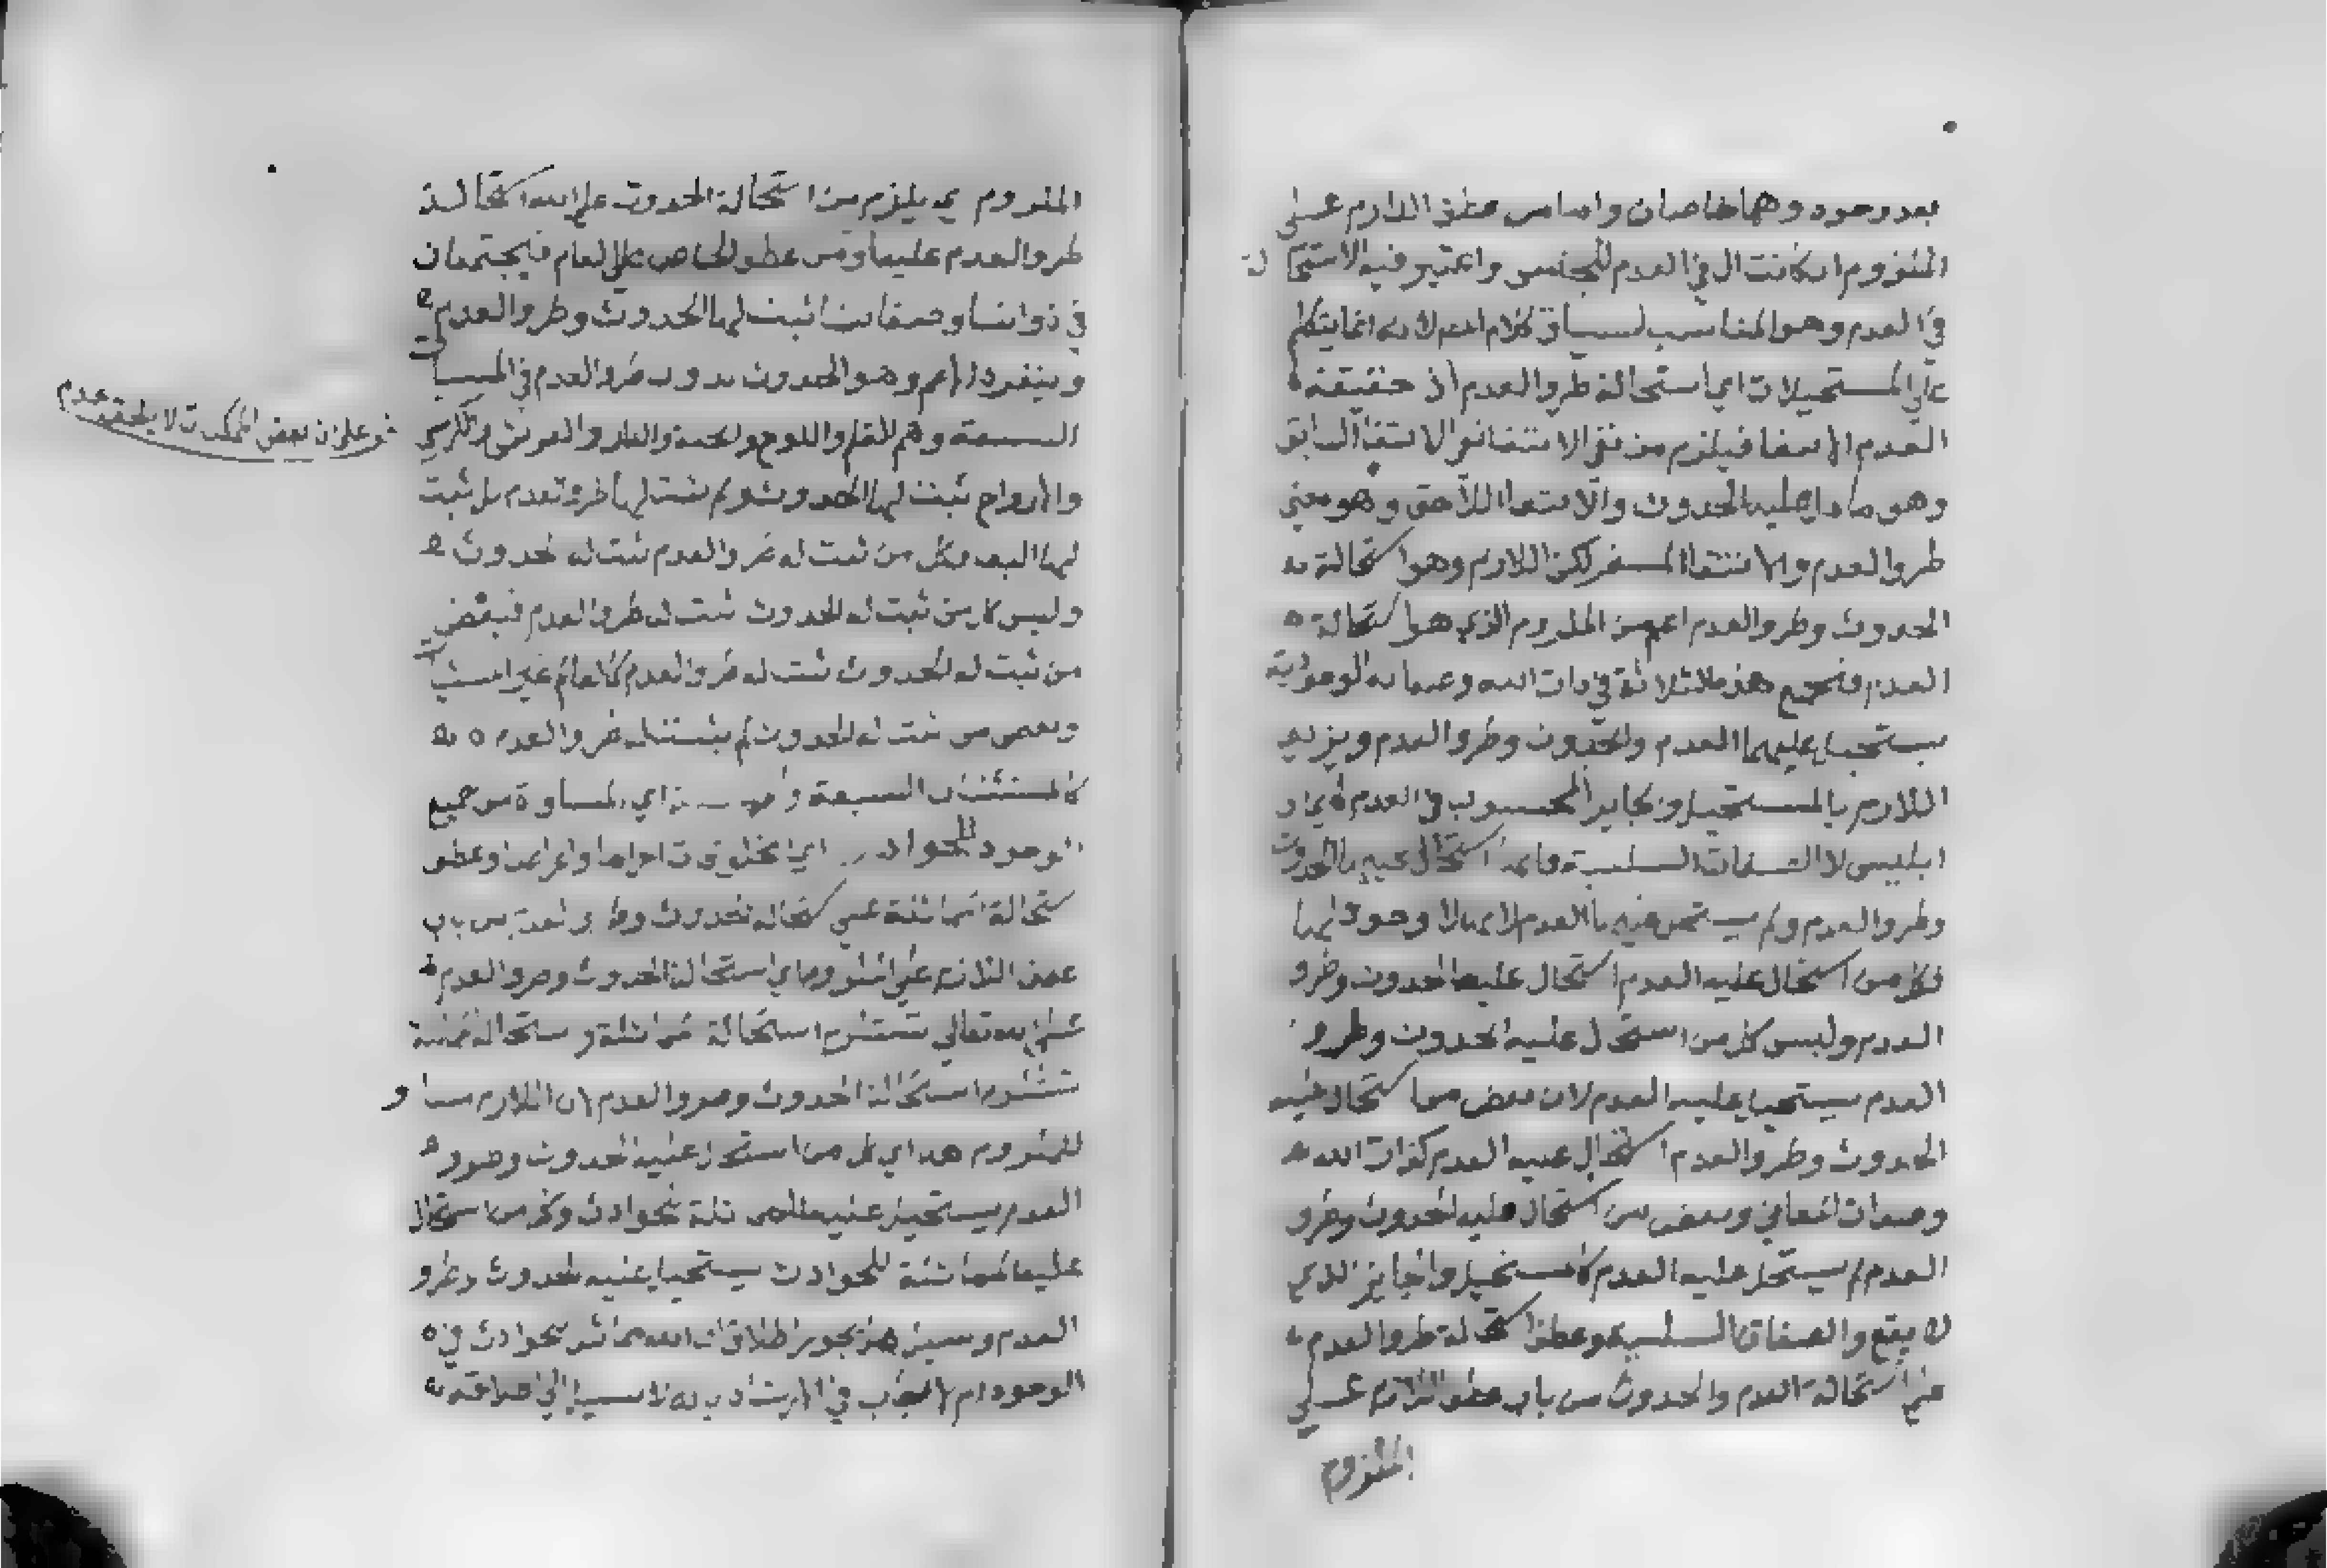 بعد وجوده وهما خاصان واما من عطف اللازم على
الملزوم ان كانت ال في العدم للجنس واعتبر فيه الاستحالة
في العدم وهو المناسب لسياق كلام المص لانه انما يتكلم
على المستحيلات اي استحالة طرو العدم اذ حقيقة
العدم الانتفا فيلزم من نفي الانتفا نفي الانتفا السابق
وهو ما دل عليه الحدوث والانتفا اللاحق وهو معنى
طرو العدم والانتفا المستمر لكن اللازم وهو استحالة
الحدوث وطرو العدم اعم من الملزوم الذي هو استحالة
العدم فتجتمع هذه الثلاثة في ذات الله وصفاته الوجودية
يستحيل عليهما العدم والحدوث وطرو العدم ويزيد
اللازم بالمستحيل وبجايز المحسوب في العدم كايمان
ابليس والصفات السلبية فانه استحال عليها الحدوث
وطرو العدم ولم يستحل عليها العدم لانها لا وجود لها
فكل من استحال عليه العدم استحال عليه الحدوث وطرو
العدم وليس كل من استحال عليه الحدوث وطرو
العدم يستحيل عليه العدم لان بعض من استحال عليه
الحدوث وطرو العدم استحال عليه العدم كذات الله
وصفات المعاني وبعض من استحال عليه الحدوث وطرو
العدم لم يستحل عليه العدم كالمستحيل والجايز الذي
لا يقع والصفات السلبية وعطف استحالة طرو العدم
على استحالة العدم والحدوث من باب عطف اللازم على
الملزوم
الملزوم اي يلزم من استحالة الحدوث على الله استحالة
طرو العدم عليه او من عطف الخاص على العام فيجتمعان
في ذواتنا وصفاتنا ثبت لها الحدوث وطرو العدم
وينفرد الاعم وهو الحدوث بدون طرو العدم في المستثنيات
السبعة وهم القلم واللوح والجنة والنار والعرش والكرسي
والارواح ثبت لها الحدوث ولم يثبت لها طرو العدم بل ثبت
لها البقا فكل من ثبت له طرو العدم ثبت له الحدوث
وليس كل من ثبت له الحدوث ثبت له طرو العدم فبعض
من ثبت له الحدوث ثبت له طرو العدم كالعالم غير المستثنيات
وبعض من ثبت له الحدوث لم يثبت له طرو العدم
كالمستثنيات السبعة والمماثلة اي المساواة من جميع
الوجوه للحوادث اي المخلوقات اجرامها واعراضها وعطف
استحالة المماثلة على استحالة الحدوث وطرو العدم من باب
عطف اللازم على الملزوم اي استحالة الحدوث وطرو العدم
على الله تعالى تستلزم استحالة المماثلة واستحالة المماثلة
تستلزم استحالة الحدوث وطرو العدم لان اللازم مساو
للملزوم هنا اي كل من استحال عليه الحدوث وطرو
العدم يستحيل عليه المماثلة للحوادث وكل من استحال
عليه المماثلة للحوادث يستحيل عليه الحدوث وطرو
العدم وسيل هل يجوز اطلاق ان الله مماثل للحوادث في
الوجود ام لا فاجاب في الارشاد بانه لا سبيل الى اطلاقه
قوله على ان بعض الممكنات لا يلحقه عدم